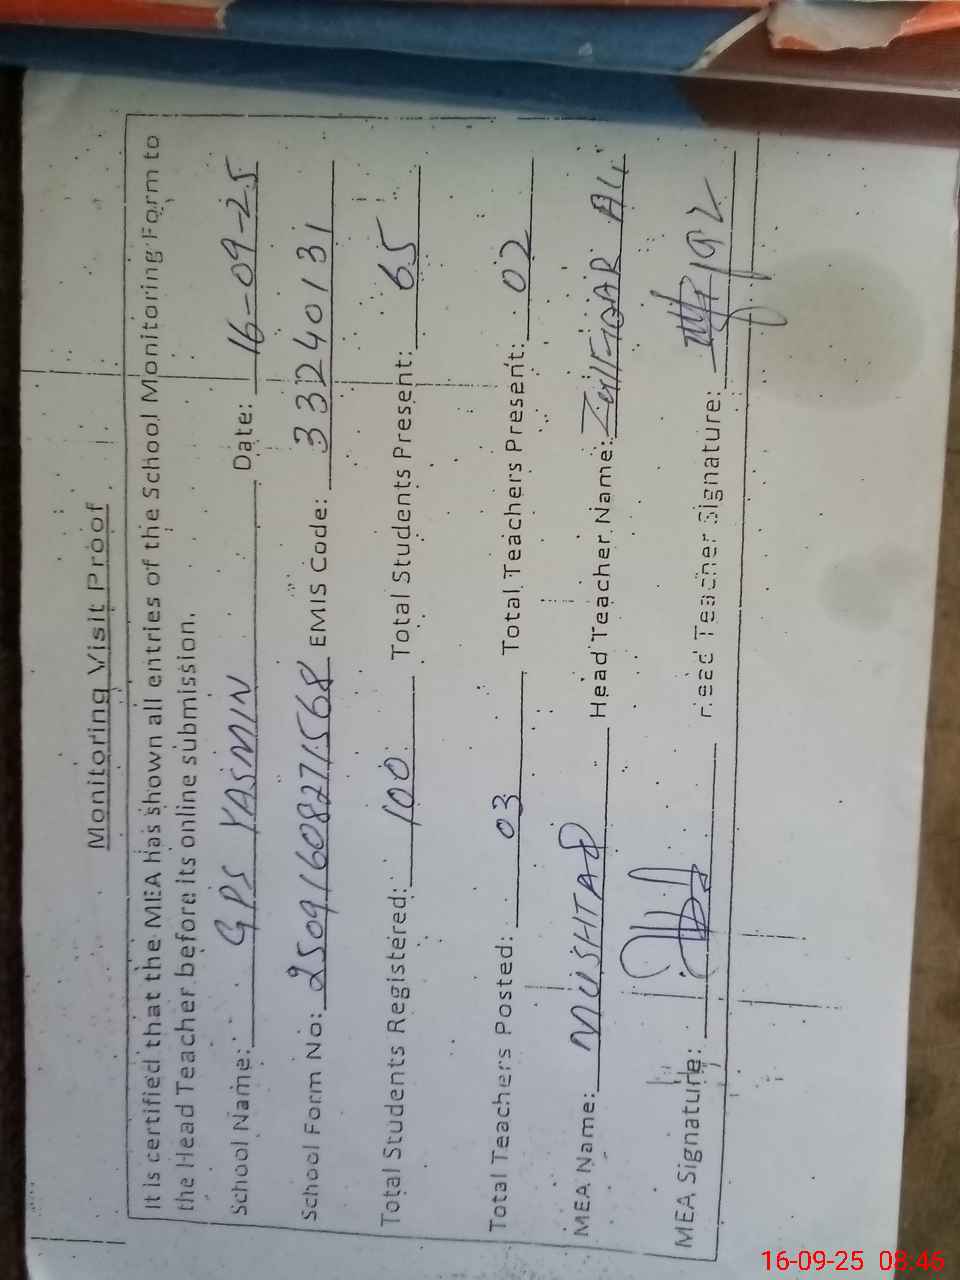 Monitoring Visit Proof
It is certified that the MEA has shown all entries of the School Monitoring Form to
the Head Teacher before its online submission.
School Name: GPS YASMIN Date: 16-09-25
School Form No: 250916082271568 EMIS Code: 33240131
Total Students Registered: 100 Total Students Present: 65
Total Teachers Posted: 03 Total Teachers Present: 02
MEA Name: MUSHTAQ Head Teacher Name: ZulFIQAR ALI
MEA Signature: Head Teacher Signature:
16-09-25 08:46